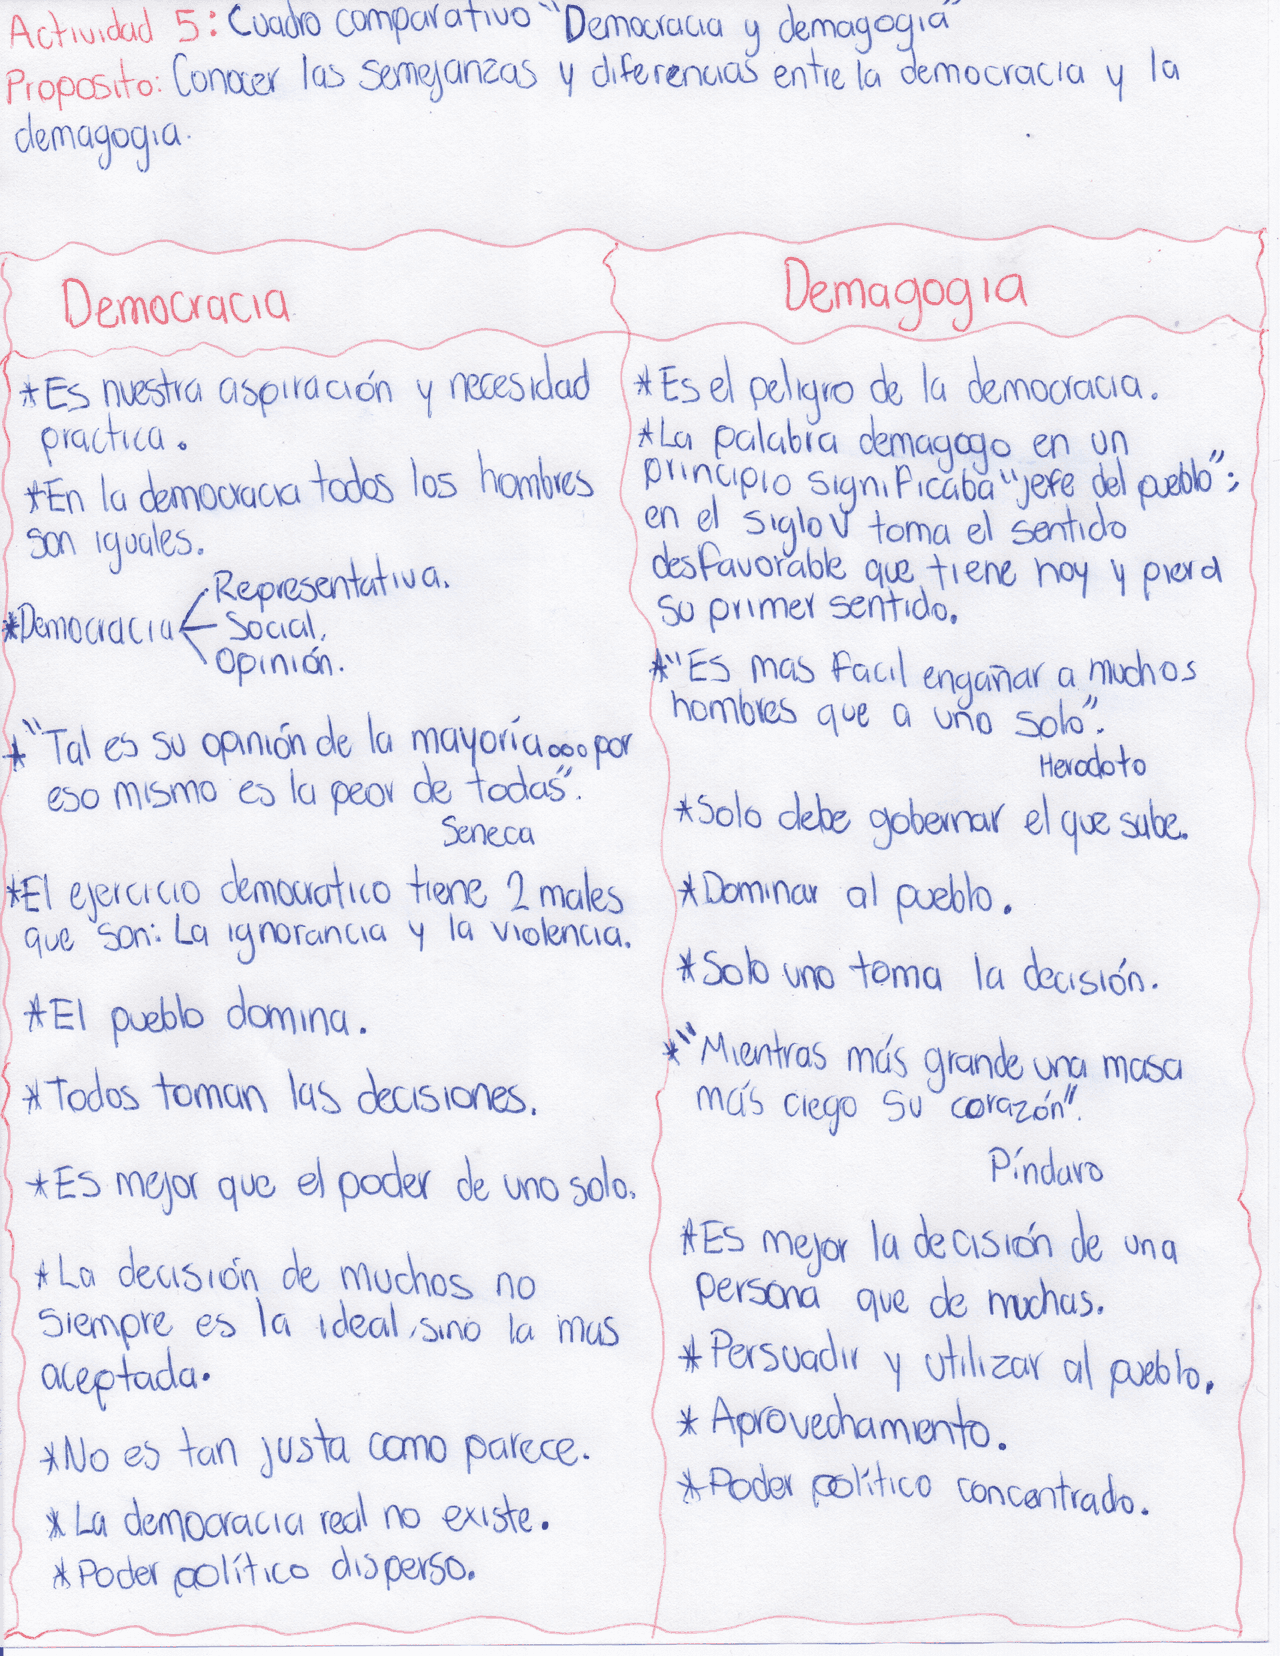 Actividad 5: Cuadro comparativo "Democracia y demagogia"
Proposito: Conocer las semejanzas y diferencias entre la democracia y la
demagogia.
Democracia
*Es nuestra aspiración y necesidad
practica.
*En la democracia todos los hombres
son iguales.
Representativa.
*Democracia Social.
Opinión.
*"Tal es su opinión de la mayoría... por
eso mismo es la peor de todas".
Seneca
*El ejercicio democratico tiene 2 males
que son: La ignorancia y la violencia.
*El pueblo domina.
*Todos toman las decisiones.
*Es mejor que el poder de uno solo.
*La decisión de muchos no
siempre es la ideal, sino la mas
aceptada.
*No es tan justa como parece.
*La democracia real no existe.
*Poder político disperso.
Demagogia
*Es el peligro de la democracia.
*La palabra demagogo en un
principio significaba "jefe del pueblo";
en el siglo V toma el sentido
desfavorable que tiene hoy y pierd
su primer sentido.
*"Es mas facil engañar a muchos
hombres que a uno solo".
Herodoto
*Solo debe gobernar el que sabe.
*Dominar al pueblo.
*Solo uno toma la decisión.
*"Mientras más grande una masa
más ciego su corazón".
Píndaro
*Es mejor la decisión de una
persona que de muchas.
*Persuadir y utilizar al pueblo.
*Aprovechamiento.
*Poder político concentrado.